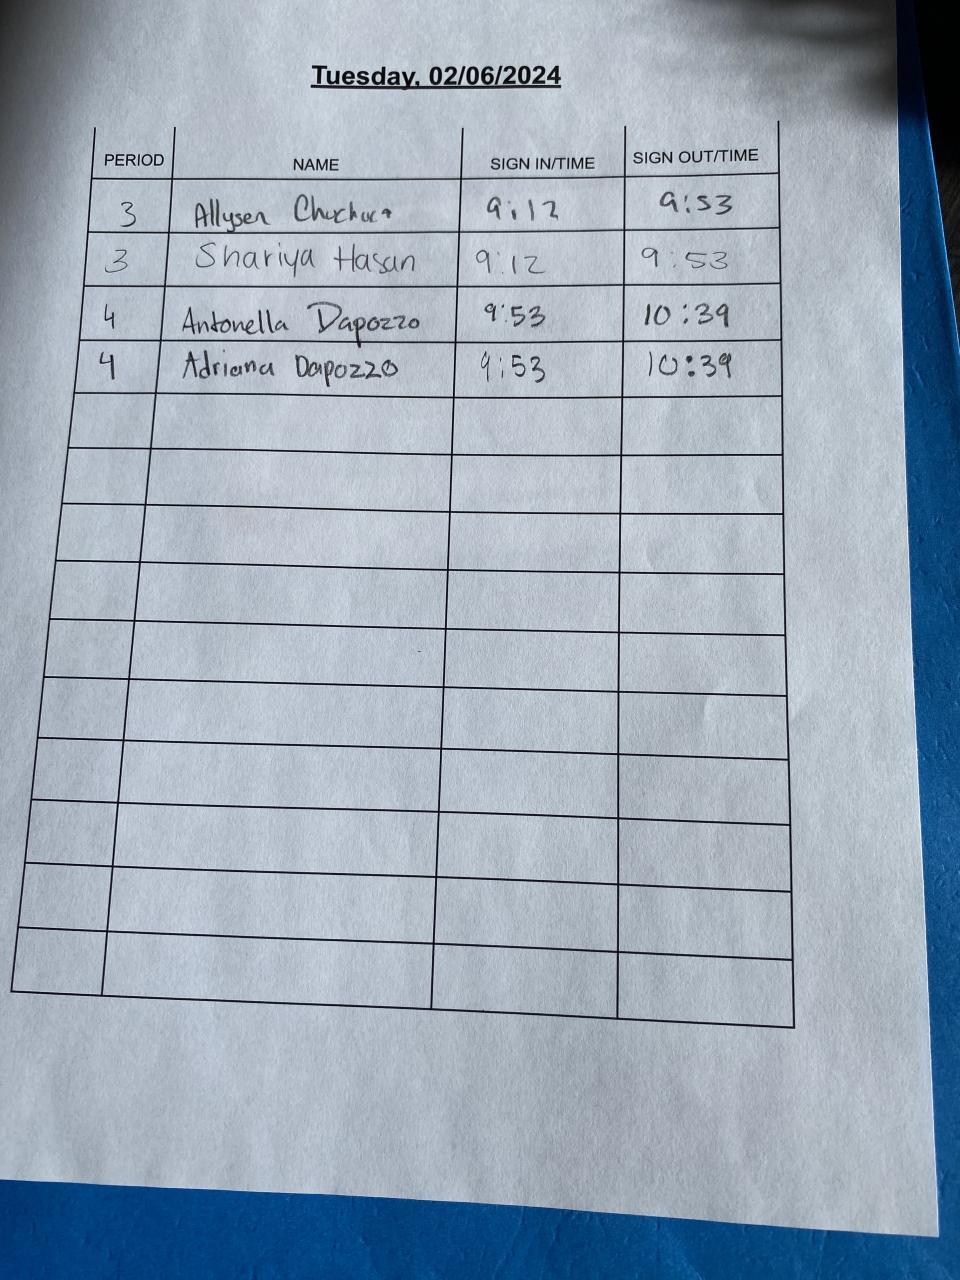 Tuesday, 02/06/2024
PERIOD NAME SIGN IN/TIME SIGN OUT/TIME
3 Allysen Chuchuca 9:12 9:53
3 Shariya Hasan 9:12 9:53
4 Antonella Dapozzo 9:53 10:39
4 Adriana Dapozzo 9:53 10:39